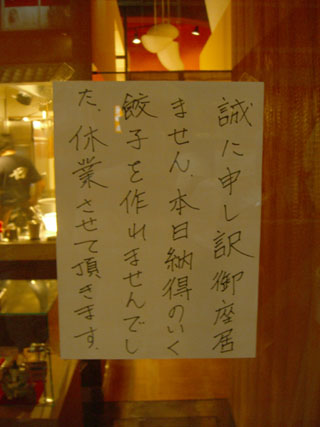 誠に申し訳御座居
ません、本日納得のいく
餃子を作れませんでし
た、休業させて頂きます。